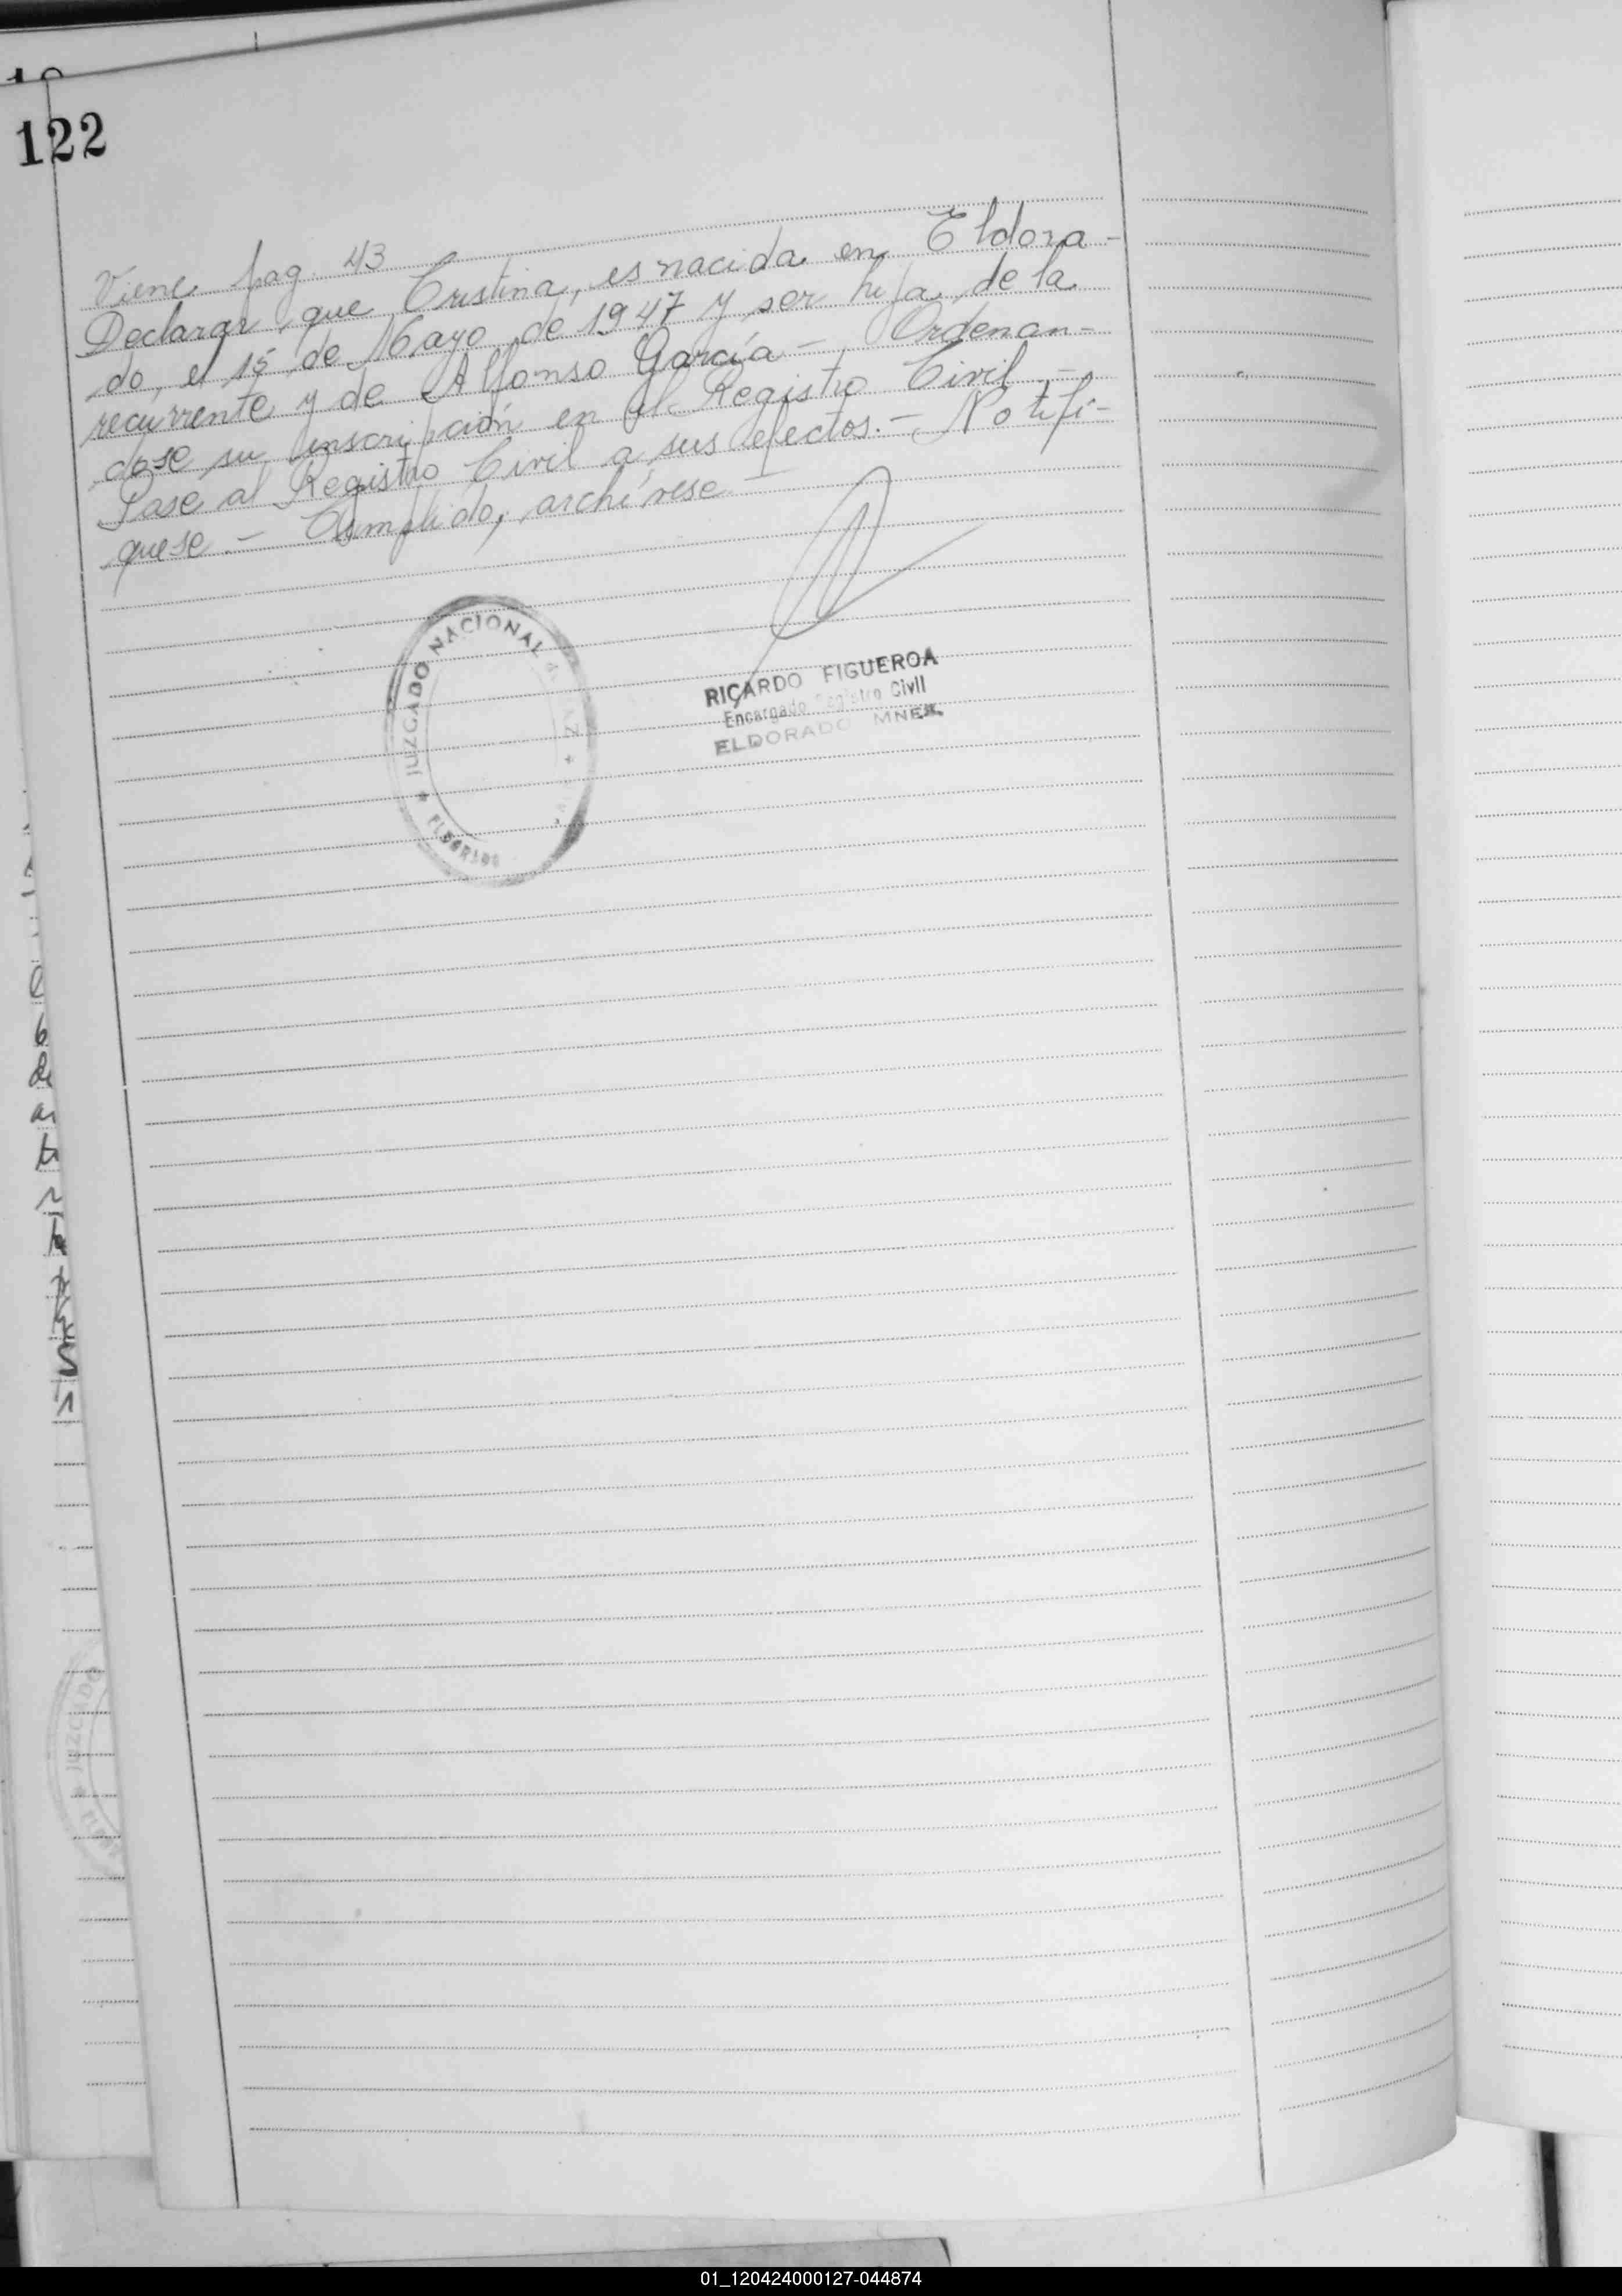 122
Viene pag. 43
Declarar, que Cristina, es nacida en Eldora-
do, el 15 de Mayo de 1947 y ser hija de la
recurrente y de Alfonso García - Ordenan-
dose su inscripción en el Registro Civil. -
Pase al Registro Civil a sus efectos. - Notifi-
quese. - Cumplido, archívese -
JUZGADO NACIONAL DE PAZ
ELDORADO
RICARDO FIGUEROA
Encargado Registro Civil
ELDORADO MNES.
01_120424000127-044874